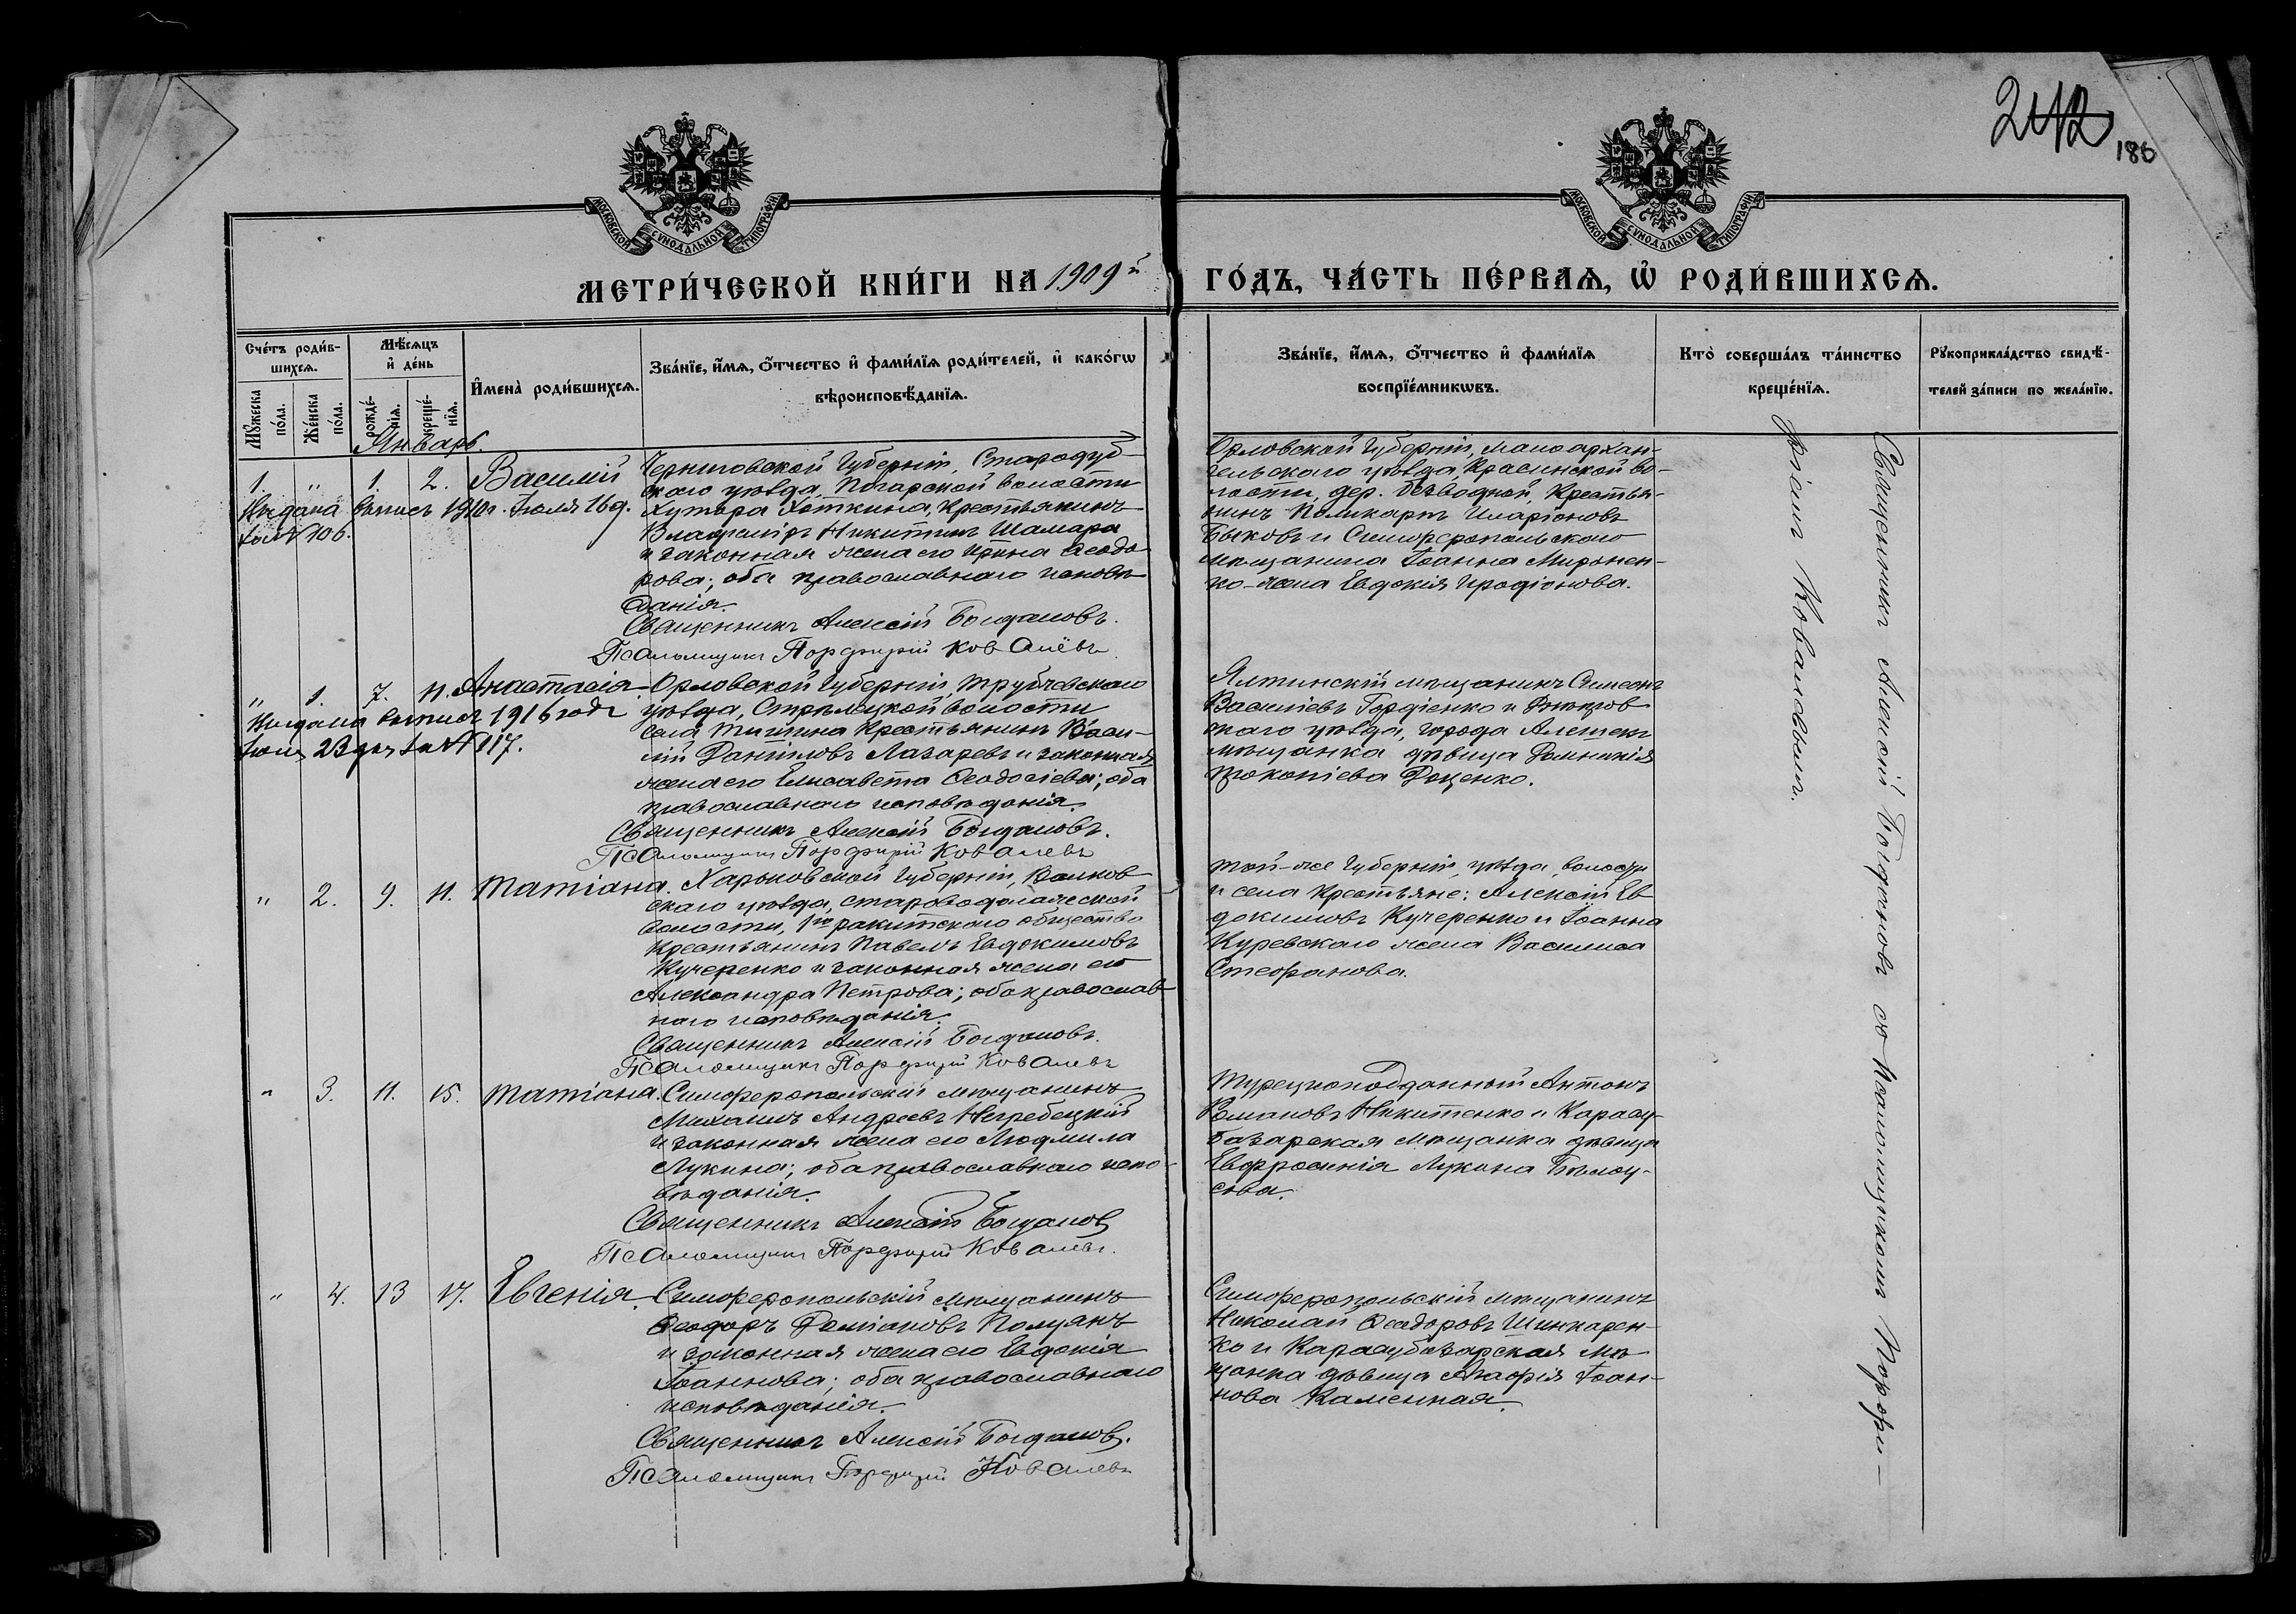 242
186
МОСКОВСКОЙ СѴНОДАЛЬНОЙ ТИПОГРАФІИ
МОСКОВСКОЙ СѴНОДАЛЬНОЙ ТИПОГРАФІИ
МЕТРИ́ЧЕСКОЙ КНИ́ГИ НА 1909й ГО́ДЪ, ЧА́СТЬ ПЕ́РВАѦ, Ѡ҆ РОДИ́ВШИХСѦ.
Сче́тъ роди́в-
шихсѧ.
Мꙋ́жеска по́ла.
Же́нска по́ла.
Мѣ́сѧцъ
и҆ де́нь
рожде́-
нїѧ.
креще́-
нїѧ.
И҆мена̀ роди́вшихсѧ.
Зва́нїе, и҆́мѧ, ѻ҆́тчество и҆ фами́лїѧ роди́телей, и҆ како́гѡ
вѣроисповѣ́данїѧ.
Зва́нїе, и҆́мѧ, ѻ҆́тчество и҆ фами́лїѧ
воспрїе́мникѡвъ.
Кто̀ соверша́лъ та́инство
креще́нїѧ.
Рꙋкоприкла́дство свидѣ́-
телей за́писи по жела́нїю.
Январь.
1. " 1. 2. Василій
Выдана выпись 1910 г. Іюля 16 д.
за № 106.
Черниговской губерніи, Стародуб-
скаго уѣзда, Погарской волости
Хутора Хоткина, Крестьянинъ
Владиміръ Никитинъ Шамара
и законная жена его Ирина Ѳеодо-
рова; оба православнаго исповѣ-
данія.
Священникъ Алексій Богдановъ.
Псаломщикъ Порфирій Ковалёвъ
Орловской губерніи, Малоархан-
гельскаго уѣзда, Красинской во-
лости, дер. Безводной, Крестья-
нинъ Поликарпъ Иларіоновъ
Быковъ и Симферопольскаго
мѣщанина Іоанна Миронен-
ко - жена Евдокія Иродіонова.
" 1. 7. 11. Анастасія
Выдана выпись 1916 года
Іюня 23 дня за № 117.
Орловской губерніи, Трубчевскаго
уѣзда, Стрѣлецкой волости
села Тишина Крестьянинъ Васи-
лій Даніиловъ Лазаревъ и законная
жена его Елисавета Ѳеодосіева; оба
православнаго исповѣданія.
Священникъ Алексій Богдановъ.
Псаломщикъ Порфирій Ковалевъ
Ялтинскій мѣщанинъ Симеонъ
Василіевъ Гордіенко и Днѣпров-
скаго уѣзда, города Алешекъ
мѣщанка дѣвица Домникія
Прокопіева Доценко.
" 2. 9. 11. Татіана.
Харьковской губерніи, Валков-
скаго уѣзда, староводолажской
волости, 1го ракитскаго общества
Крестьянинъ Павелъ Евдокимовъ
Кучеренко и законная жена его
Александра Петрова; оба православ-
наго исповѣданія.
Священникъ Алексій Богдановъ.
Псаломщикъ Порфирій Ковалевъ
Той-же губерніи, уѣзда, волости
и села Крестьяне: Алексій Ев-
докимовъ Кучеренко и Іоанна
Куревскаго жена Василиса
Стефанова.
" 3. 11. 15. Татіана.
Симферопольскій мѣщанинъ
Михаилъ Андреевъ Негребецкій
и законная жена его Людмила
Лукина; оба православнаго испо-
вѣданія.
Священникъ Алексій Богдановъ
Псаломщикъ Порфирій Ковалевъ.
Турецкоподданный Антонъ
Романовъ Никитенко и Карасу-
базарская мѣщанка дѣвица
Евфросинія Лукина Бѣлоу-
сова.
" 4. 13 17. Евгенія.
Симферопольскій мѣщанинъ
Ѳеодоръ Даміановъ Полуянъ
и законная жена его Евдокія
Іоаннова; оба православнаго
исповѣданія.
Священникъ Алексій Богдановъ.
Псаломщикъ Порфирій Ковалевъ
Симферопольскій мѣщанинъ
Николай Ѳеодоровъ Шинкарен-
ко и Карасубазарская мѣ-
щанка дѣвица Агафія Іоан-
нова Каменная.
Священникъ Алексій Богдановъ со псаломщикомъ Порфи-
ріемъ Ковалевымъ.